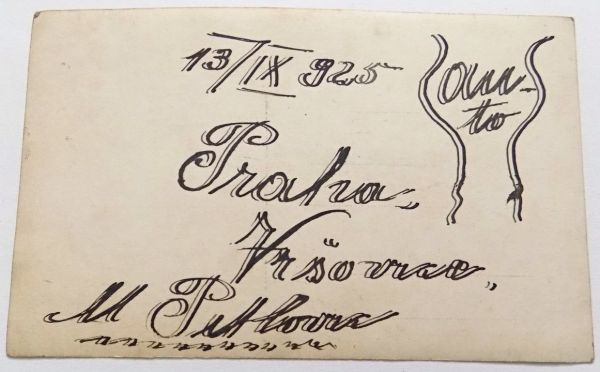 13/IX 925
au-
to
Praha,,
Vršovice,,
M